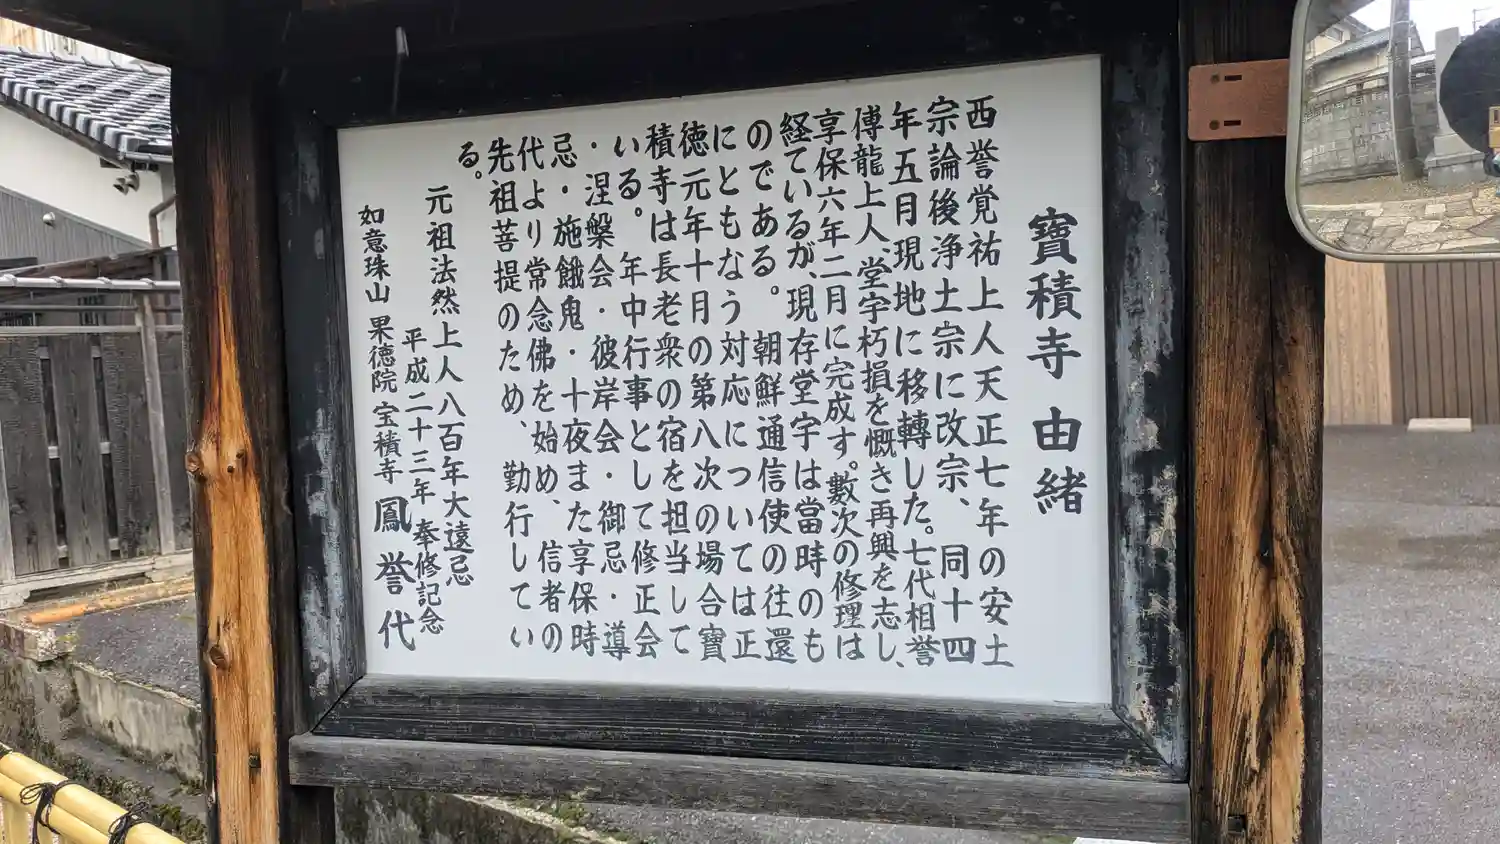 寶積寺 由緒
西誉覚祐上人天正七年の安土
宗論後浄土宗に改宗、同十四
年五月現地に移轉した。七代相誉
傳龍上人、堂宇朽損を慨き再興を志し、
享保六年二月に完成す。數次の修理は
経ているが、現存堂宇は當時のも
のである。朝鮮通信使の往還
にともなう対応については正
徳元年十月の第八次の場合寶
積寺は長老衆の宿を担当して
いる。年中行事として修正会
・涅槃会・彼岸会・御忌・導
忌・施餓鬼・十夜また享保時
代より常念佛を始め、信者の
先祖菩提のため、勤行してい
る。
元祖法然上人八百年大遠忌
平成二十三年 奉修記念
如意珠山 果徳院 宝積寺 鳳誉代